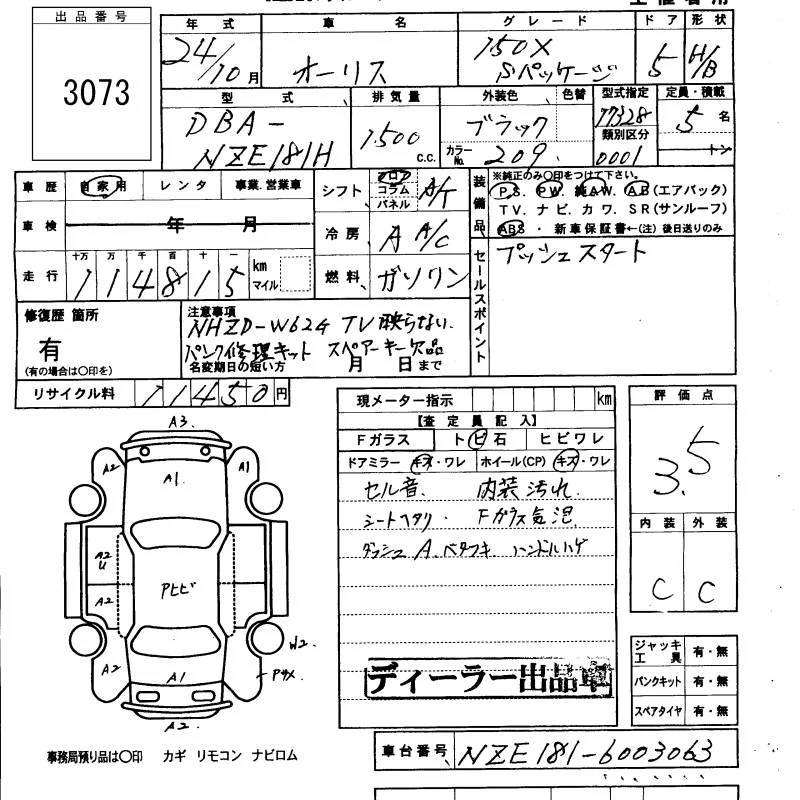 出品番号
3073
年式
24/10月
車名
オーリス
グレード
150X
Sパッケージ
ドア
5
形状
H/B
型式
DBA-
NZE181H
排気量
1,500
c.c.
外装色
色替
ブラック
カラーNo.
209
型式指定
17328
類別区分
0001
定員・積載
5名
トン
車歴
自家用
レンタ
事業.営業車
車検
年 月
走行
十万 万 千 百 十 一
114815
km
マイル
シフト
フロア
コラム
パネル
A/T
冷房
A A/C
燃料
ガソリン
装備品
※純正のみ○印をつけて下さい。
P.S. PW. 純AW. AB(エアバック)
TV. ナビ. カワ. SR(サンルーフ)
ABS・新車保証書←(注) 後日送りのみ
セールスポイント
プッシュスタート
修復歴 箇所
有
(有の場合は○印を)
注意事項
NHZD-W62G TV映らない.
パンク修理キット スペアーキー欠品
名変期日の短い方 月 日まで
リサイクル料
11450円
現メーター指示
km
【査定員記入】
Fガラス
トビ石
ヒビワレ
ドアミラー
キズ・ワレ
ホイール(CP)
キズ・ワレ
セル音. 内装汚れ
シートヘタリ・ Fガラス気泡
ダッシュA. ベタツキ ハンドルハゲ
ディーラー出品車
評価点
3.5
内装
外装
C
C
ジャッキ
工具
有・無
パンクキット
有・無
スペアタイヤ
有・無
A3.
A2
A1
A1.
A2
U
A2
Pヒビ
A2
A1
A2.
W2.
事務局預り品は○印 カギ リモコン ナビロム
車台番号
NZE181-6003063